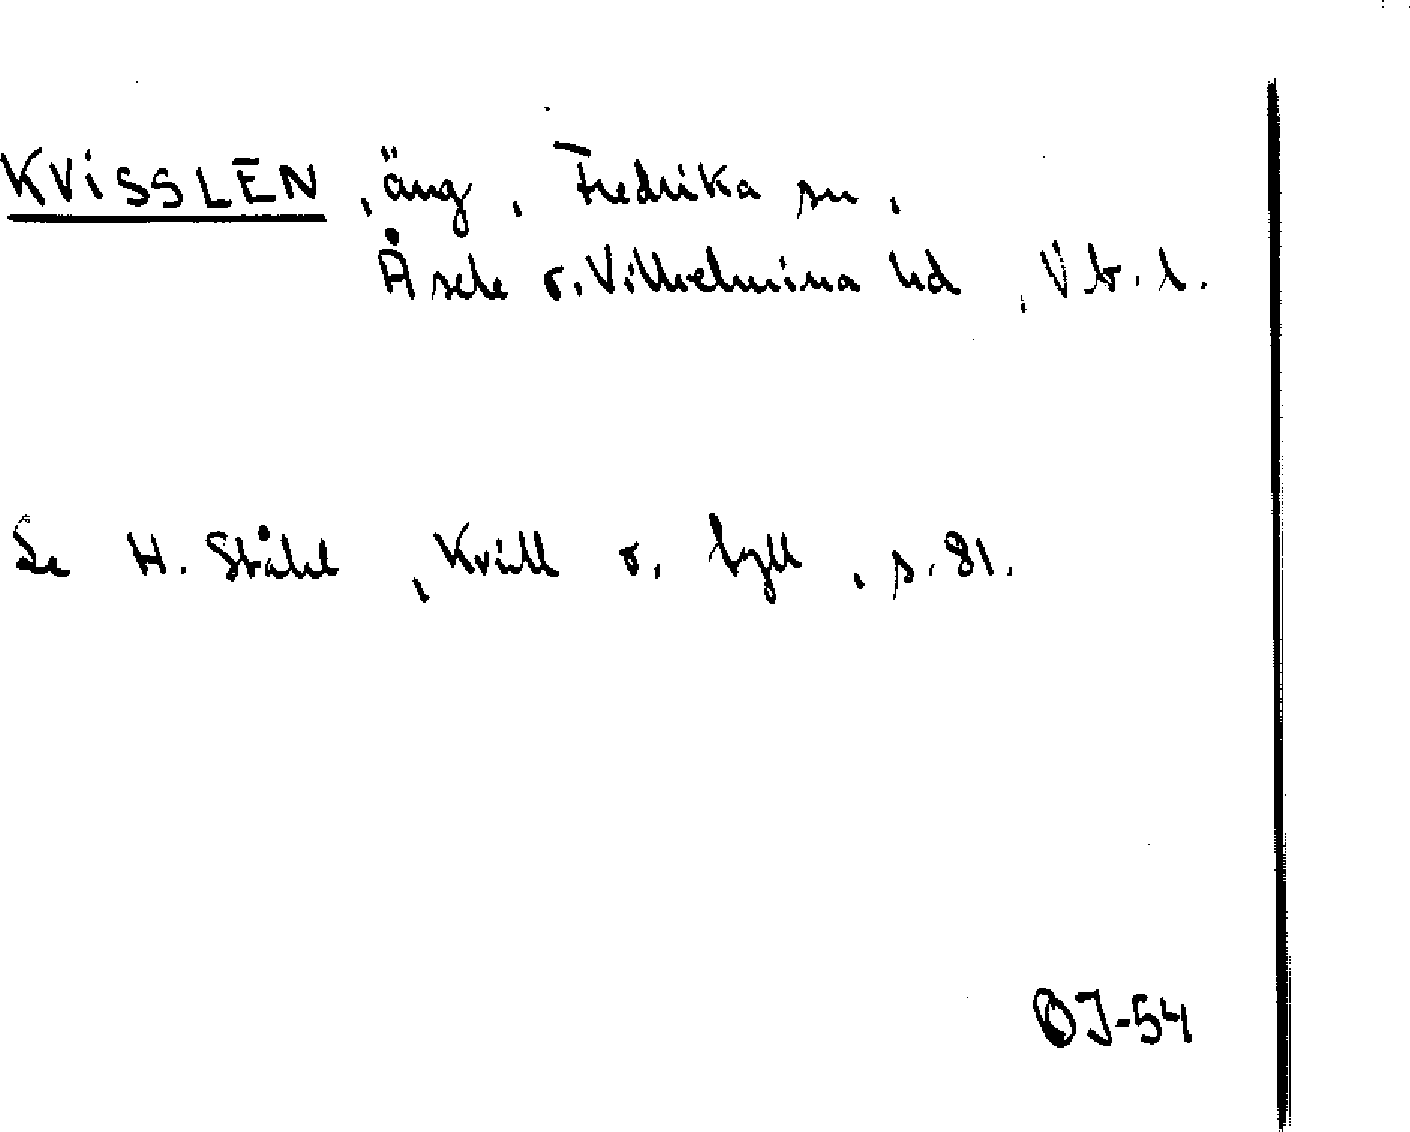 KVISSLEN, äng, Fredrika sn,
Åsele o. Vilhelmina hd, Vb. l.
Se H. Ståhl, Kvill o. tyll, s. 81.
OJ-54